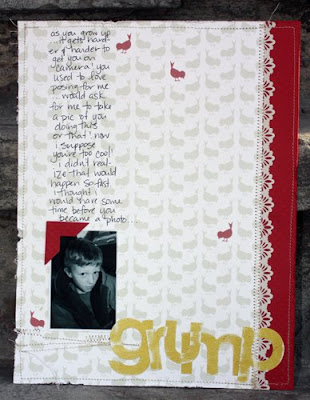 as you grow up
...it gets hard-
er & harder to
get you on
"camera". you
used to love
posing for me
... would ask
for me to take
a pic of you
doing this
or that! now
i suppose
you're too cool!
i didn't real-
ize that would
happen so fast.
i thought i
would have some
time before you
became a "photo
grump